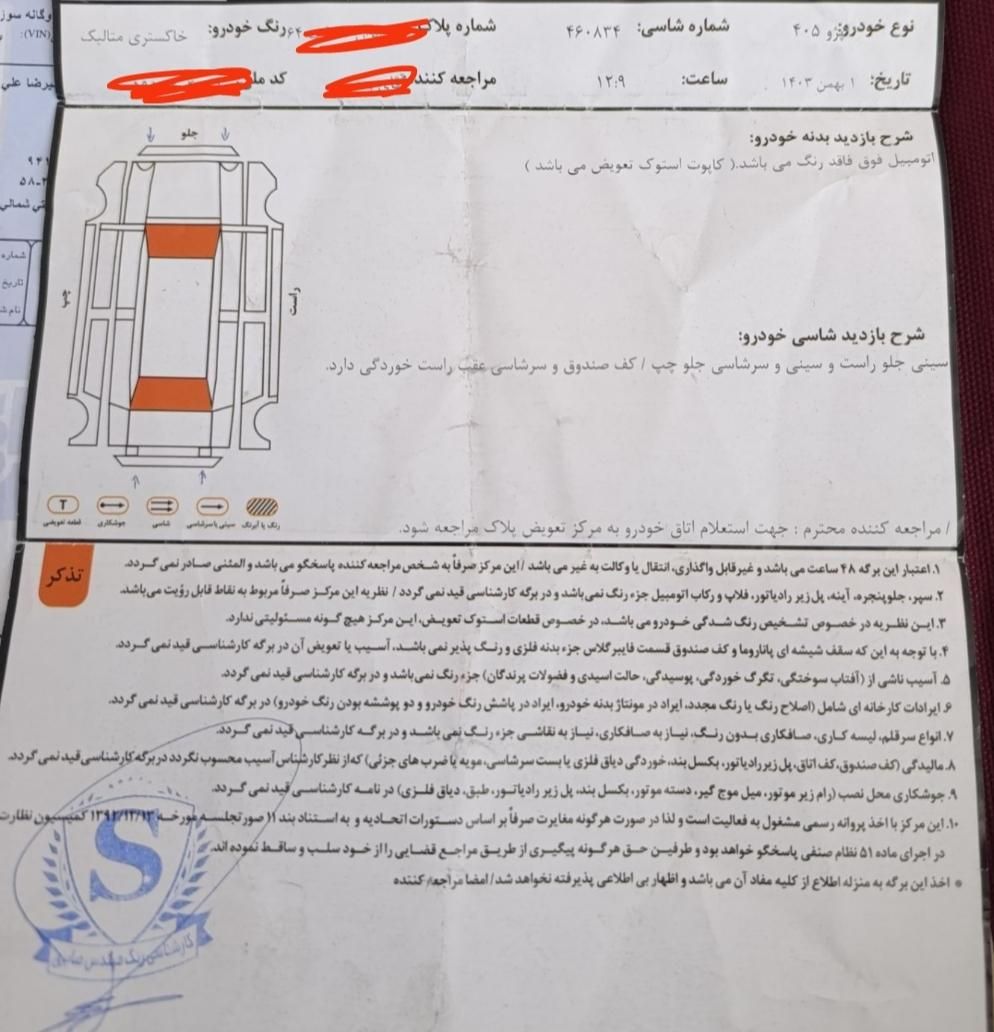 نوع خودرو: پژو ۴۰۵ شماره شاسی: ۴۶۰۸۳۴ شماره پلاک ۶۴ رنگ خودرو: خاکستری متالیک
تاریخ: ۱ بهمن ۱۴۰۳ ساعت: ۱۲:۹ مراجعه کننده کد ملی
شرح بازدید بدنه خودرو:
اتومبیل فوق فاقد رنگ می باشد.( کاپوت استوک تعویض می باشد )
جلو
چپ
راست
شرح بازدید شاسی خودرو:
سینی جلو راست و سینی و سرشاسی جلو چپ / کف صندوق و سرشاسی عقب راست خوردگی دارد.
رنگ یا آبرنگ سینی یا سرشاسی شاسی جوشکاری T قطعه تعویضی
/ مراجعه کننده محترم : جهت استعلام اتاق خودرو به مرکز تعویض پلاک مراجعه شود.
تذکر
۱. اعتبار این برگه ۴۸ ساعت می باشد و غیرقابل واگذاری، انتقال یا وکالت به غیر می باشد / این مرکز صرفاً به شخص مراجعه کننده پاسخگو می باشد و المثنی صادر نمی گردد.
۲. سپر، جلوپنجره، آینه، پل زیر رادیاتور، فلاپ و رکاب اتومبیل جزء رنگ نمی باشد و در برگه کارشناسی قید نمی گردد / نظریه این مرکز صرفاً مربوط به نقاط قابل رؤیت می باشد.
۳. این نظریه در خصوص تشخیص رنگ شدگی خودرو می باشد، در خصوص قطعات استوک تعویض، این مرکز هیچ گونه مسئولیتی ندارد.
۴. با توجه به این که سقف شیشه ای پاناروما و کف صندوق قسمت فایبرگلاس جزء بدنه فلزی و رنگ پذیر نمی باشد، آسیب یا تعویض آن در برگه کارشناسی قید نمی گردد.
۵. آسیب ناشی از (آفتاب سوختگی، تگرگ خوردگی، پوسیدگی، حالت اسیدی و فضولات پرندگان) جزء رنگ نمی باشد و در برگه کارشناسی قید نمی گردد.
۶. ایرادات کارخانه ای شامل (اصلاح رنگ یا رنگ مجدد، ایراد در مونتاژ بدنه خودرو، ایراد در پاشش رنگ خودرو و دو پوششه بودن رنگ خودرو) در برگه کارشناسی قید نمی گردد.
۷. انواع سرقلم، لیسه کاری، صافکاری بدون رنگ، نیاز به صافکاری، نیاز به نقاشی جزء رنگ نمی باشد و در برگه کارشناسی قید نمی گردد.
۸. مالیدگی (کف صندوق، کف اتاق، پل زیر رادیاتور، بکسل بند، خوردگی دیاق فلزی یا بست سرشاسی، مویه یا ضرب های جزئی) که از نظر کارشناس آسیب محسوب نگردد در برگه کارشناسی قید نمی گردد.
۹. جوشکاری محل نصب (رام زیر موتور، میل موج گیر، دسته موتور، بکسل بند، پل زیر رادیاتور، طبق، دیاق فلزی) در نامه کارشناسی قید نمی گردد.
۱۰. این مرکز با اخذ پروانه رسمی مشغول به فعالیت است و لذا در صورت هرگونه مغایرت صرفاً بر اساس دستورات اتحادیه و به استناد بند ۱۱ صورتجلسه مورخه ۱۳۹۲/۱۲/۱۲ کمیسیون نظارت
در اجرای ماده ۵۱ نظام صنفی پاسخگو خواهد بود و طرفین حق هرگونه پیگیری از طریق مراجع قضایی را از خود سلب و ساقط نموده اند.
• اخذ این برگه به منزله اطلاع از کلیه مفاد آن می باشد و اظهار بی اطلاعی پذیرفته نخواهد شد / امضا مراجعه کننده
S
کارشناسی رنگ مهندس
وگانه سوز
(VIN):
یرضا علی
۹۴۱
شمالی
شماره
تاریخ